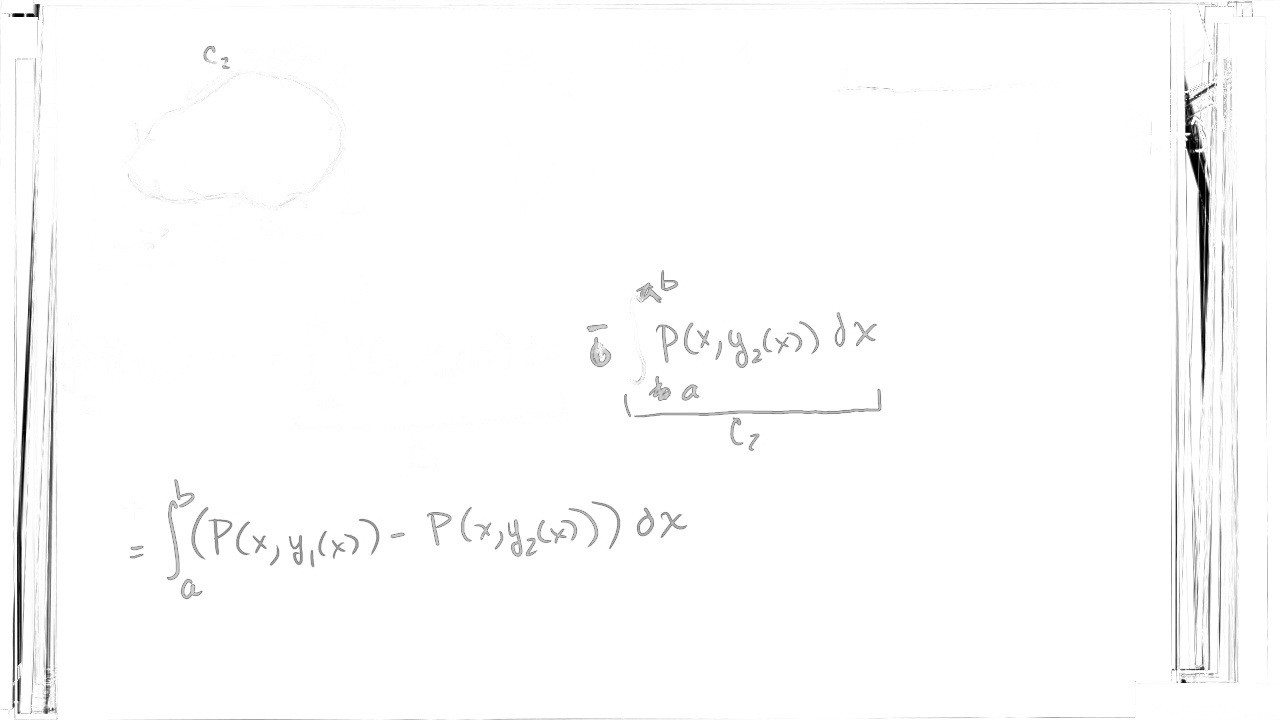 C₂
- ∫_a^b P(x, y₂(x)) dx
C₂
= ∫_a^b (P(x, y₁(x)) - P(x, y₂(x))) dx